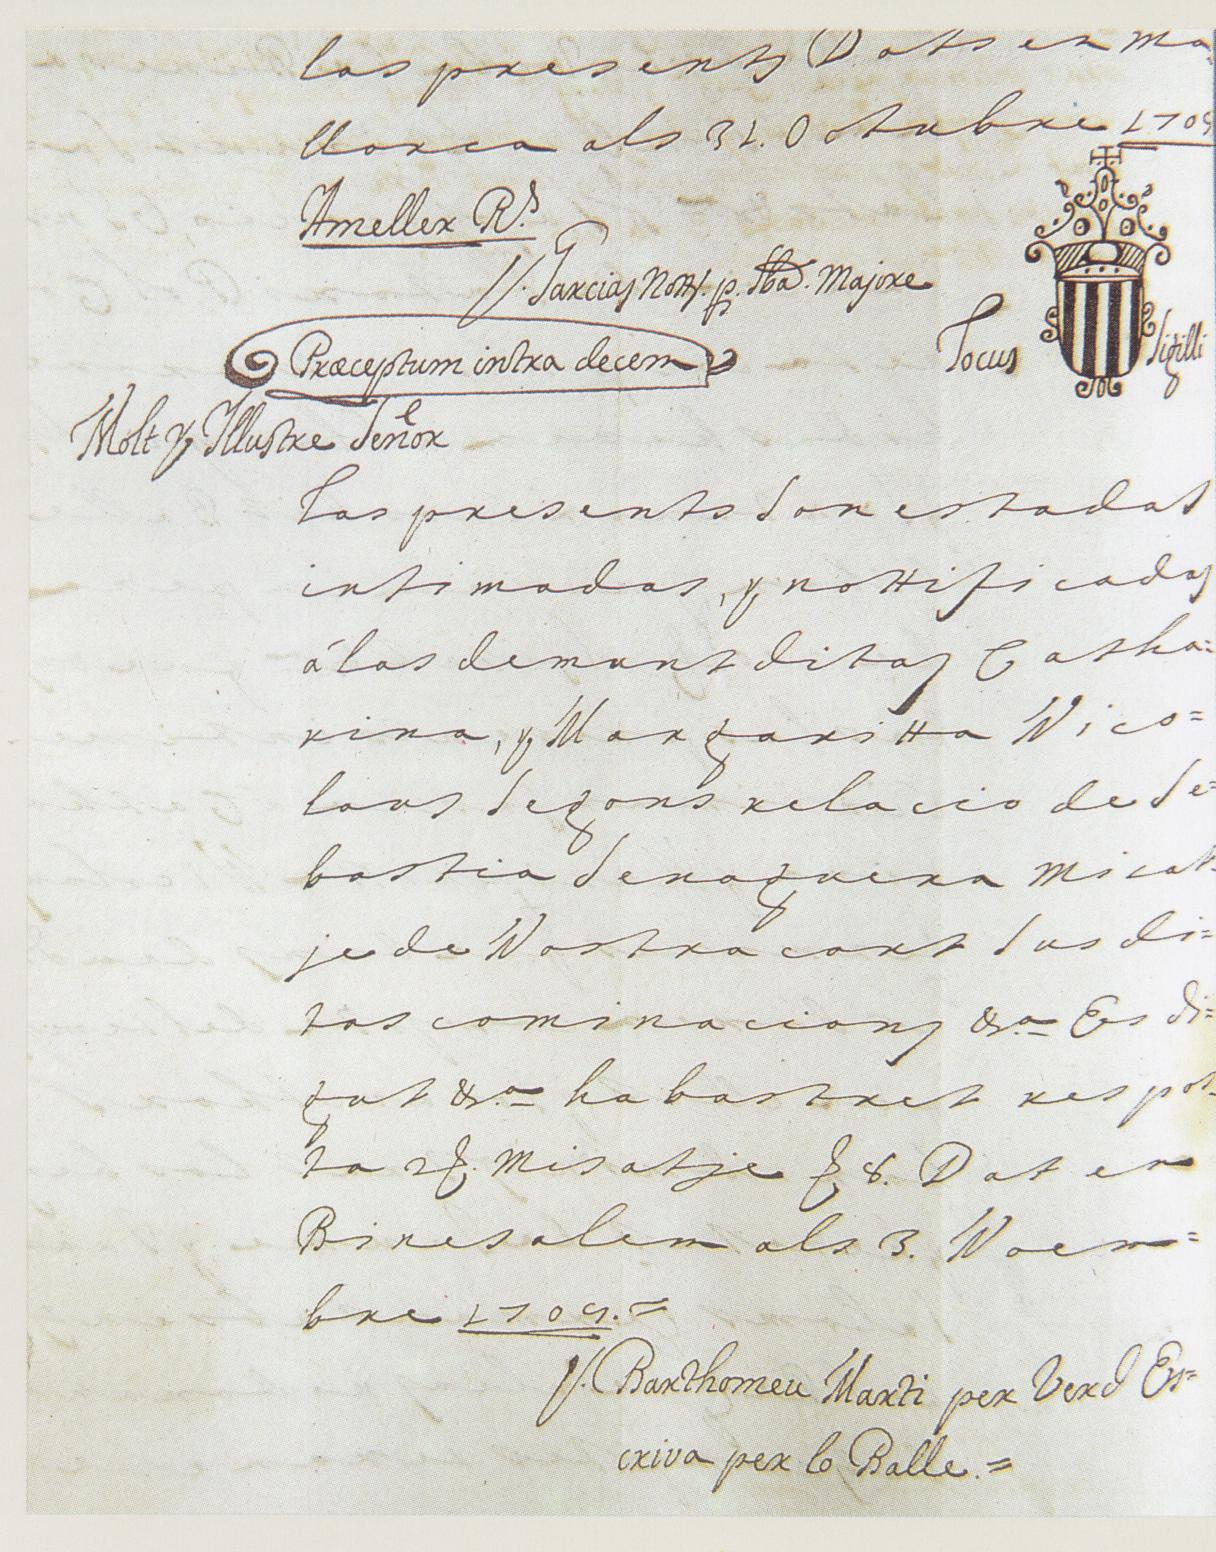 las presents Dats en Ma
llorca als 31. Octubre 1705
Ameller R.s
//. Garcias Nott. p. Sba. Majore
Præceptum intra decem
Locus Sigilli
Molt y Illustre Señor
Las presents son estadas
intimadas, y nottificadas
á las demunt ditas Catha=
rina, y Margaritta Nico=
laus segons relacio de Se=
bastia Senaguera Misat
je de Nostra cort sus di=
tas cominacions &.a Es di=
gut &.a ha bastret respos
ta 2 Misatje 8. Dat en
Binesalem als 3. Noem=
bre 1705.=
//. Barthomeu Marti per Verd Es=
criva per lo Balle.=